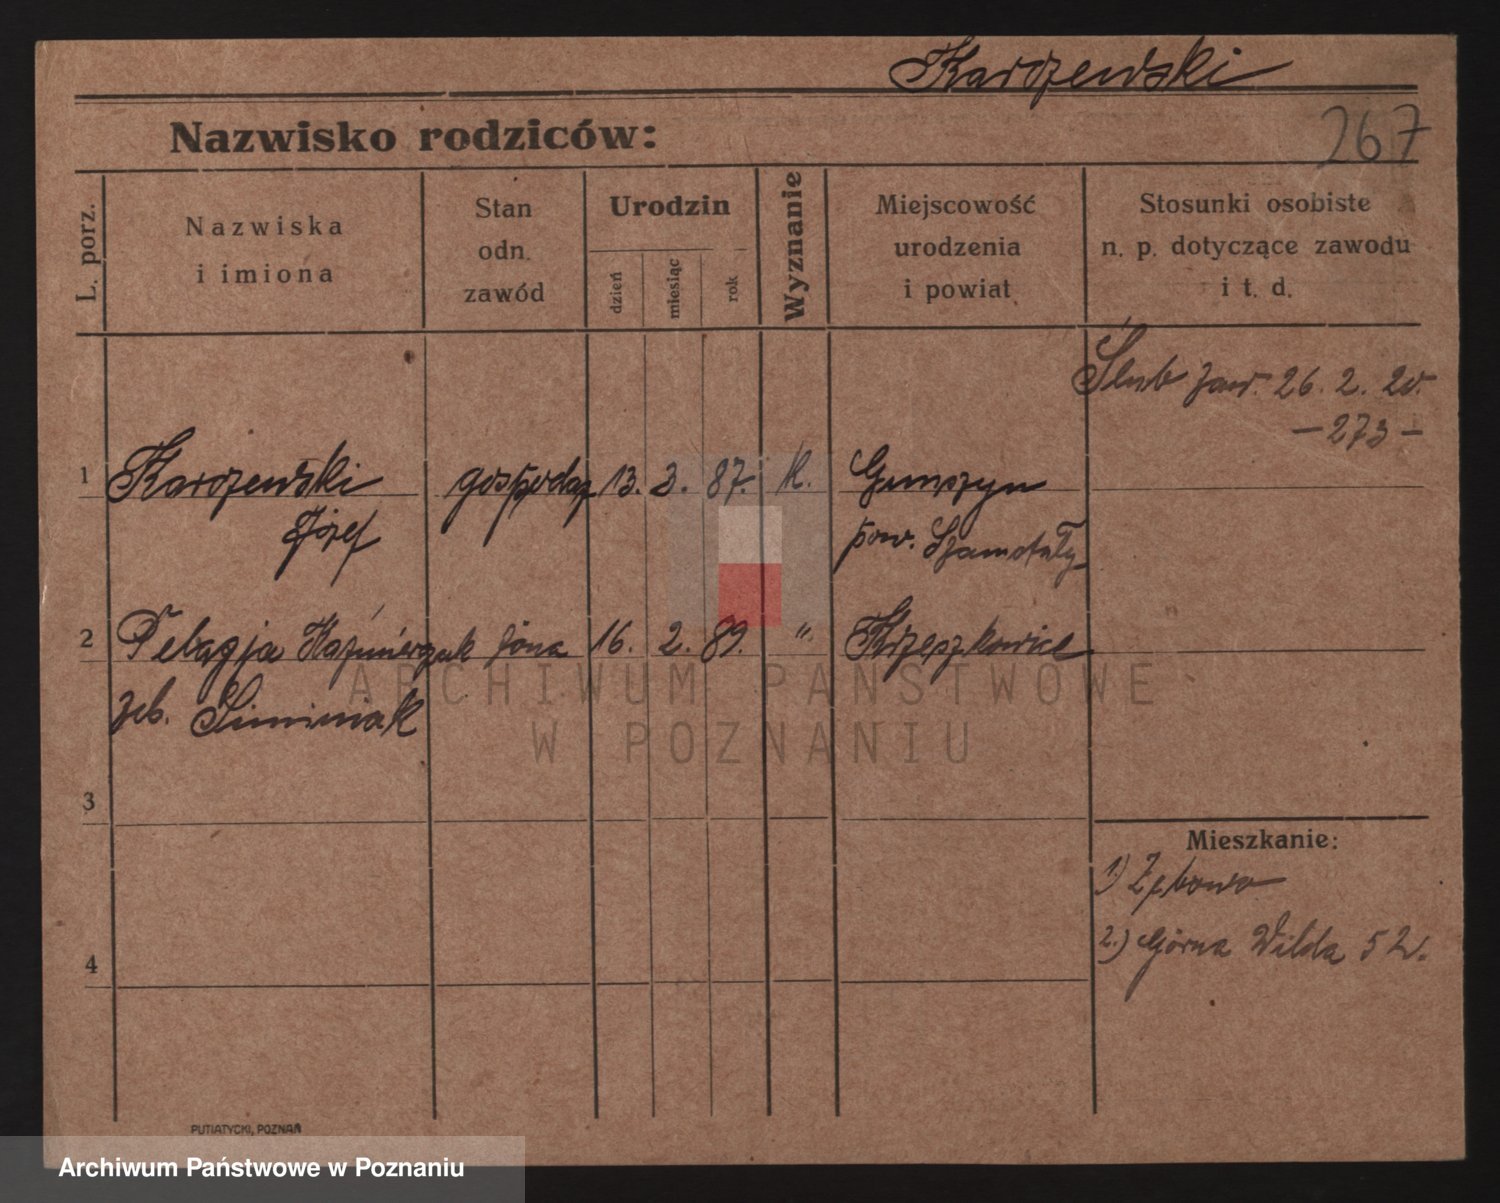 Karczewski
267
Nazwisko rodziców:
L. porz.
Nazwiska
i imiona
Stan
odn.
zawód
Urodzin
dzień
miesiąc
rok
Wyznanie
Miejscowość
urodzenia
i powiat
Stosunki osobiste
n. p. dotyczące zawodu
i t. d.
Ślub zaw. 26. 2. 20.
- 273 -
1 Karczewski gospodarz 13. 3. 87. k.
Józef pow. Szamotuły
2 Pelagja Kaźmierczak żona 16. 2. 89. " Krzeszkowice
zeb. Siminiak
3
4
Mieszkanie:
1) Zębowo
2.) Górna Wilda 52.
PUTIATYCKI, POZNAŃ
ARCHIWUM PAŃSTWOWE
W POZNANIU
Archiwum Państwowe w Poznaniu